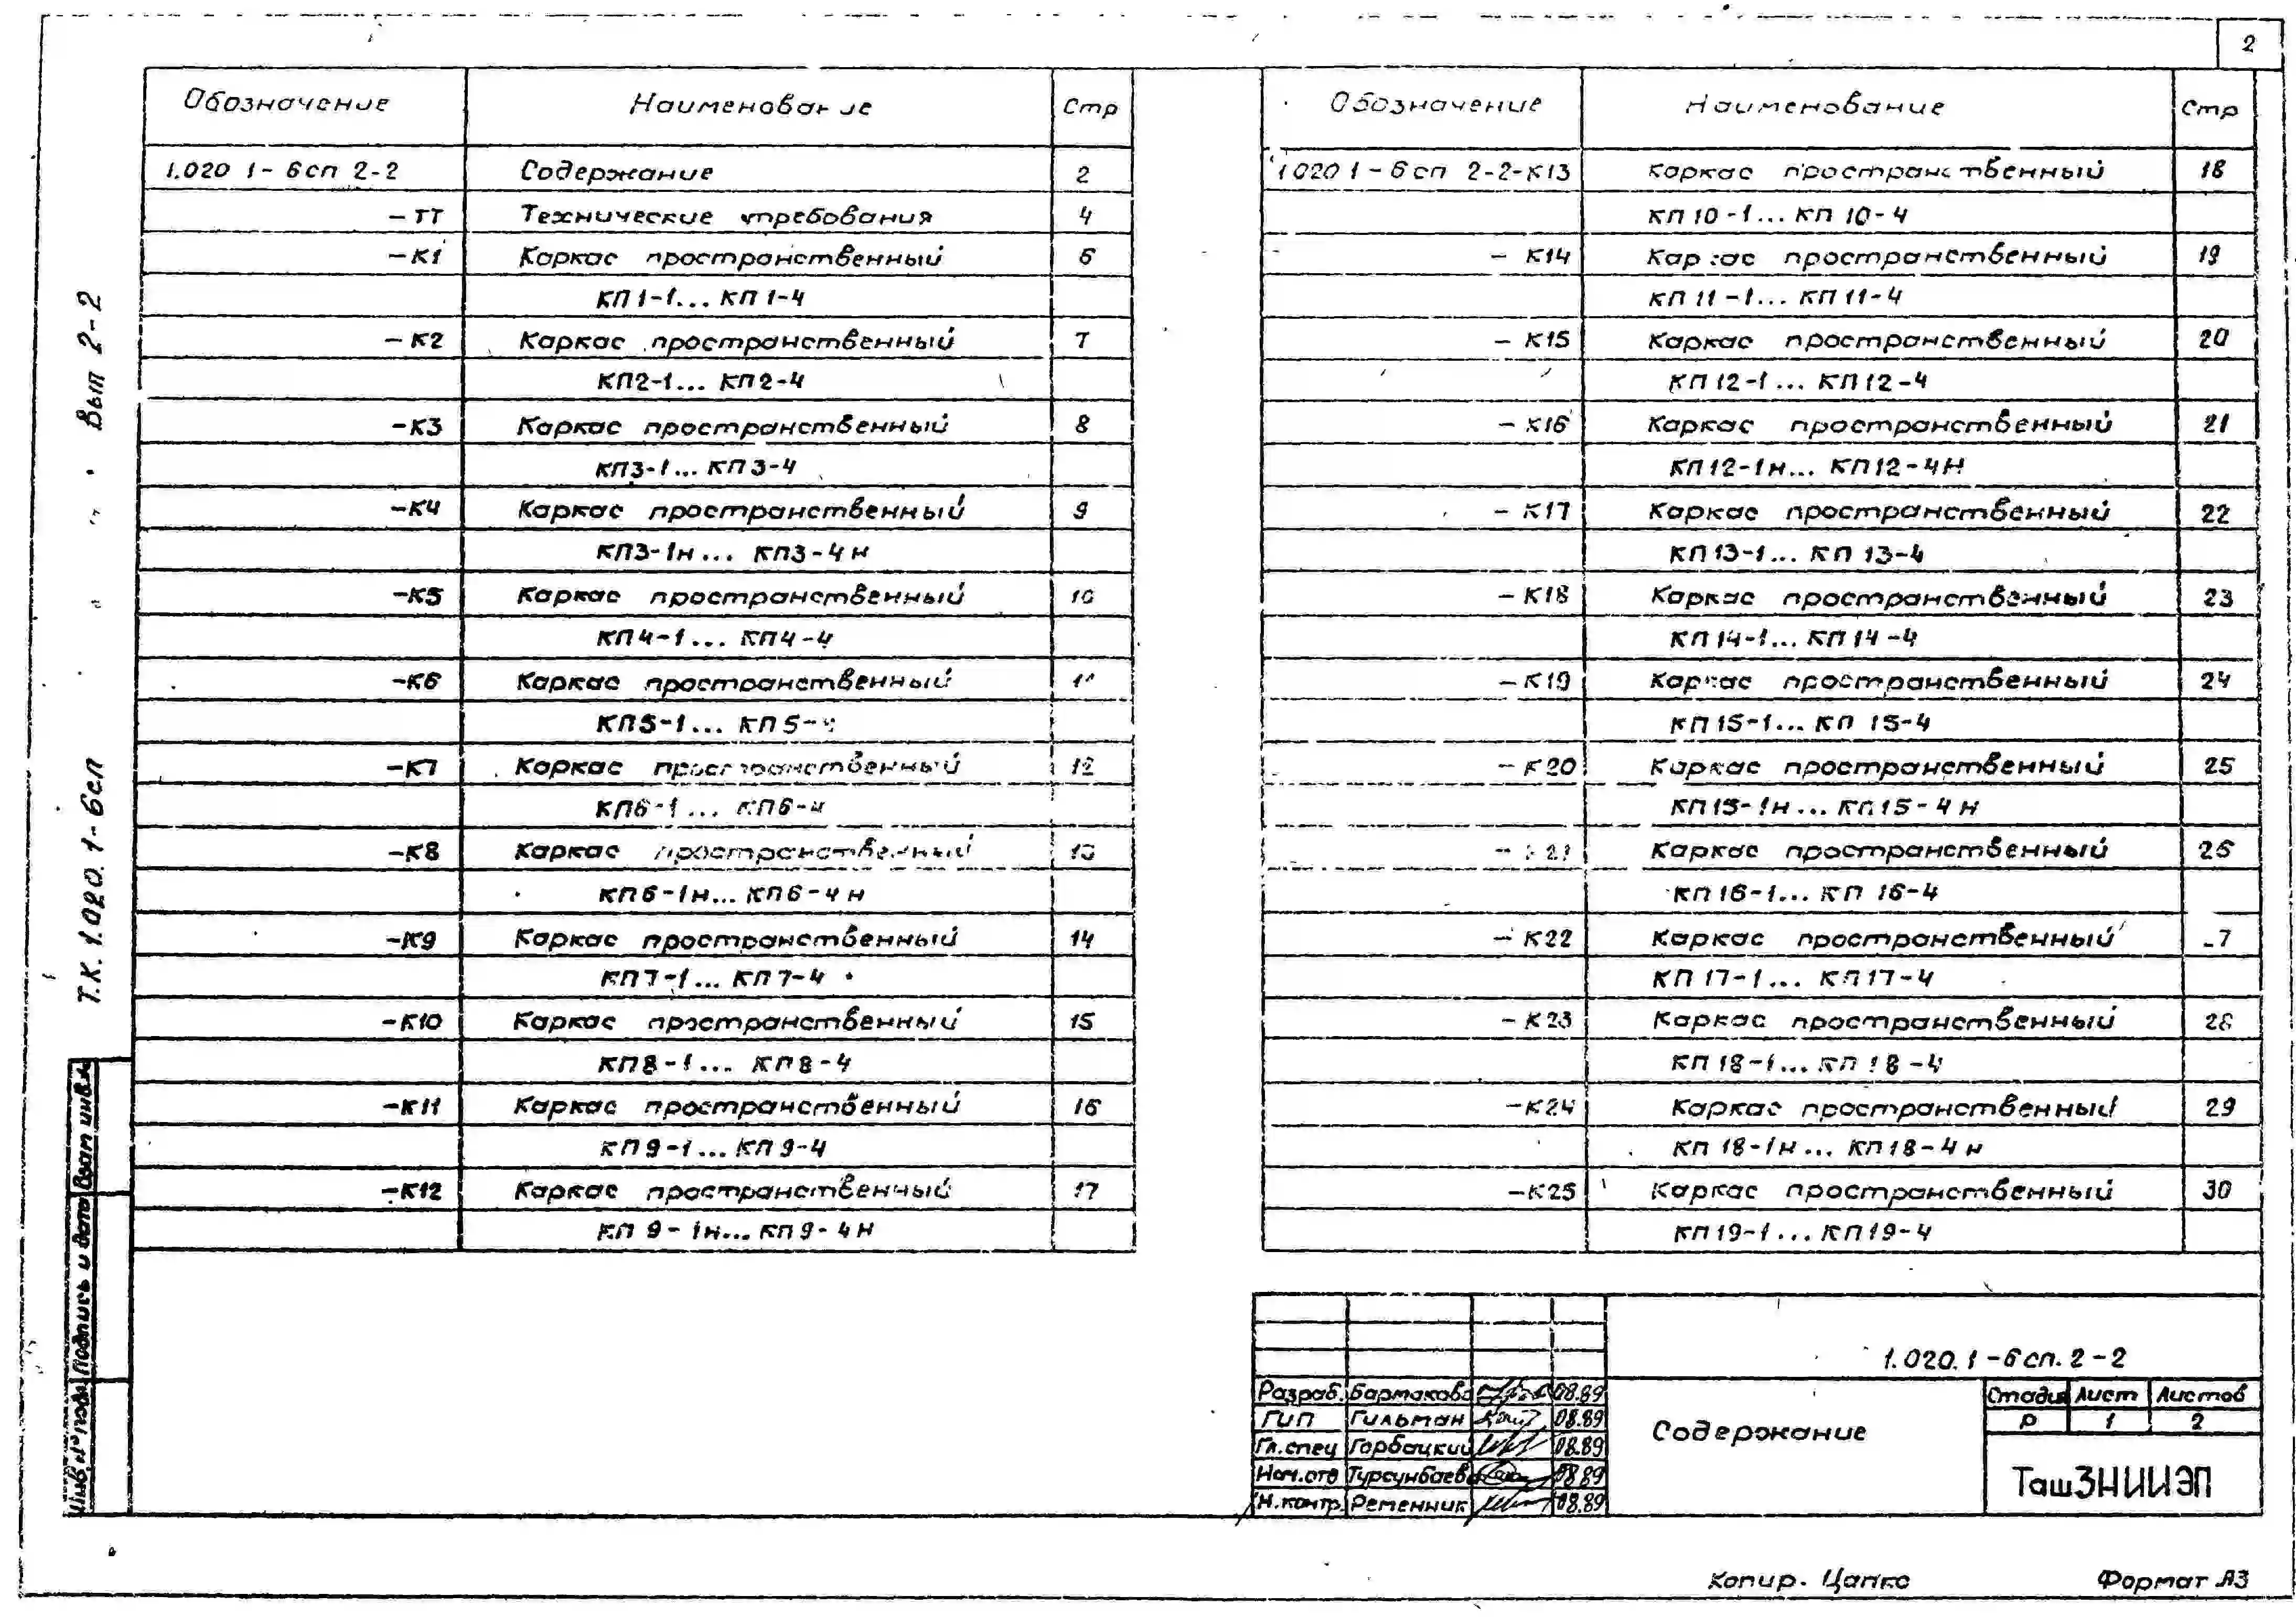 2
Обозначение Наименование Стр
1.020 1-6сп 2-2 Содержание 2
-ТТ Технические требования 4
-К1 Каркас пространственный 6
КП1-1... КП1-4
-К2 Каркас пространственный 7
КП2-1... КП2-4
-К3 Каркас пространственный 8
КП3-1... КП3-4
-К4 Каркас пространственный 9
КП3-1н... КП3-4н
-К5 Каркас пространственный 10
КП4-1... КП4-4
-К6 Каркас пространственный
КП5-1... КП5-4
-К7 Каркас пространственный 12
КП6-1... КП6-4
-К8 Каркас пространственный 13
КП6-1н... КП6-4н
-К9 Каркас пространственный 14
КП7-1... КП7-4
-К10 Каркас пространственный 15
КП8-1... КП8-4
-К11 Каркас пространственный 16
КП9-1... КП9-4
-К12 Каркас пространственный 17
КП 9-1н... КП9-4н
Обозначение Наименование Стр
1020 1-6сп 2-2-К13 Каркас пространственный 18
КП10-1... КП 10-4
- К14 Каркас пространственный 19
КП 11-1... КП11-4
- К15 Каркас пространственный 20
КП12-1... КП12-4
- К16 Каркас пространственный 21
КП12-1н... КП12-4н
- К17 Каркас пространственный 22
КП13-1... КП 13-4
- К18 Каркас пространственный 23
КП14-1... КП14-4
- К19 Каркас пространственный 24
КП15-1... КП 15-4
- К20 Каркас пространственный 25
КП15-1н... КП15-4н
- К21 Каркас пространственный 26
КП16-1... КП 16-4
- К22 Каркас пространственный
КП 17-1... КП17-4
- К23 Каркас пространственный 28
КП18-1... КП 18-4
-К24 Каркас пространственный 29
КП 18-1н... КП18-4н
-К25 Каркас пространственный 30
КП19-1... КП19-4
Т.К. 1.020.1-6сп Вып 2-2
Инв.№ подл. Подпись и дата Взам инв.№
1.020.1-6сп.2-2
Разраб. Бармакова 08.89
ГИП Гильман 08.89
Гл.спец Горбацкий 08.89
Нач.отд Турсунбаева 08.89
Н.контр. Ременник 08.89
Содержание
Стадия Лист Листов
Р 1 2
ТашЗНИИЭП
Копир. Цапко Формат А3